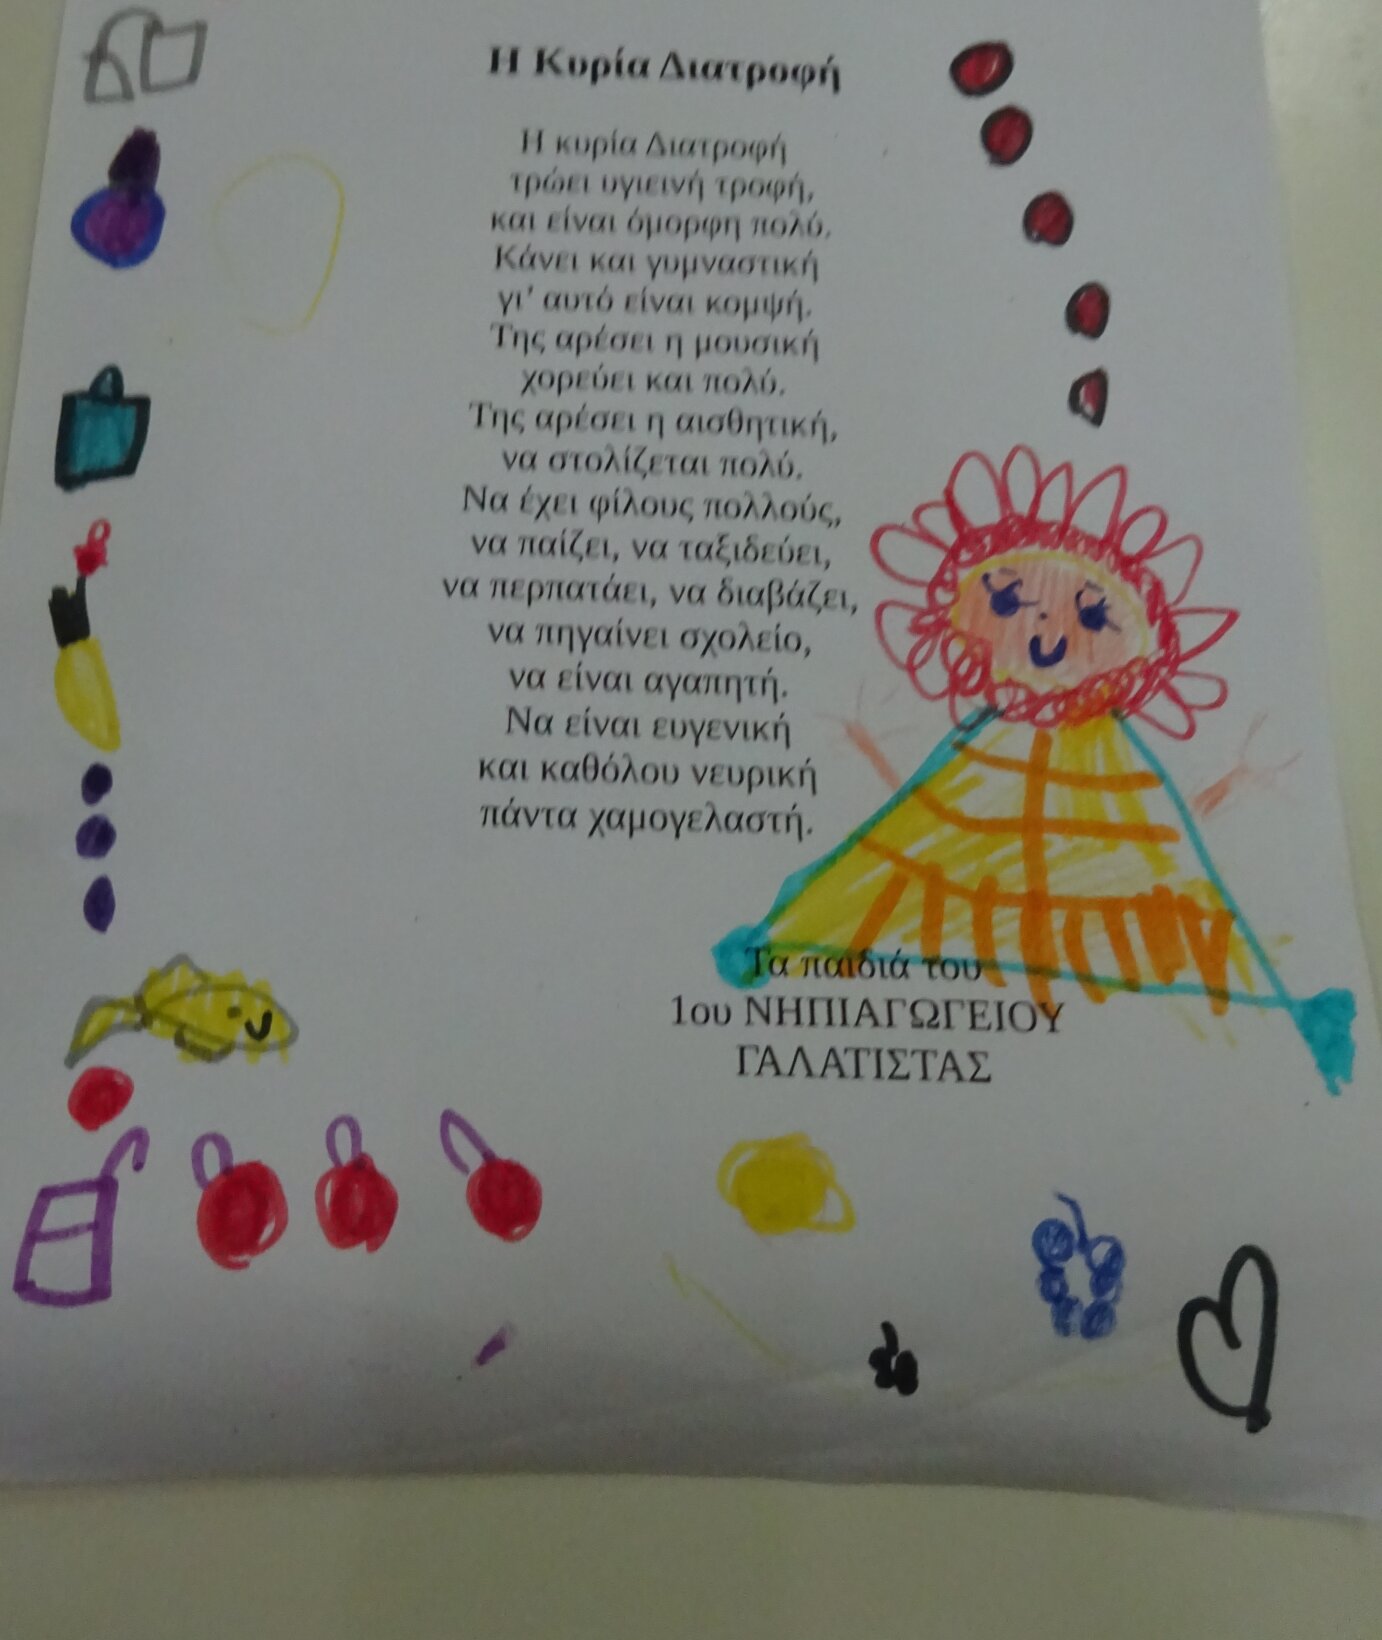 Η Κυρία Διατροφή
Η κυρία Διατροφή
τρώει υγιεινή τροφή,
και είναι όμορφη πολύ.
Κάνει και γυμναστική
γι' αυτό είναι κομψή.
Της αρέσει η μουσική
χορεύει και πολύ.
Της αρέσει η αισθητική,
να στολίζεται πολύ.
Να έχει φίλους πολλούς,
να παίζει, να ταξιδεύει,
να περπατάει, να διαβάζει,
να πηγαίνει σχολείο,
να είναι αγαπητή.
Να είναι ευγενική
και καθόλου νευρική
πάντα χαμογελαστή.
Τα παιδιά του
1ου ΝΗΠΙΑΓΩΓΕΙΟΥ
ΓΑΛΑΤΙΣΤΑΣ